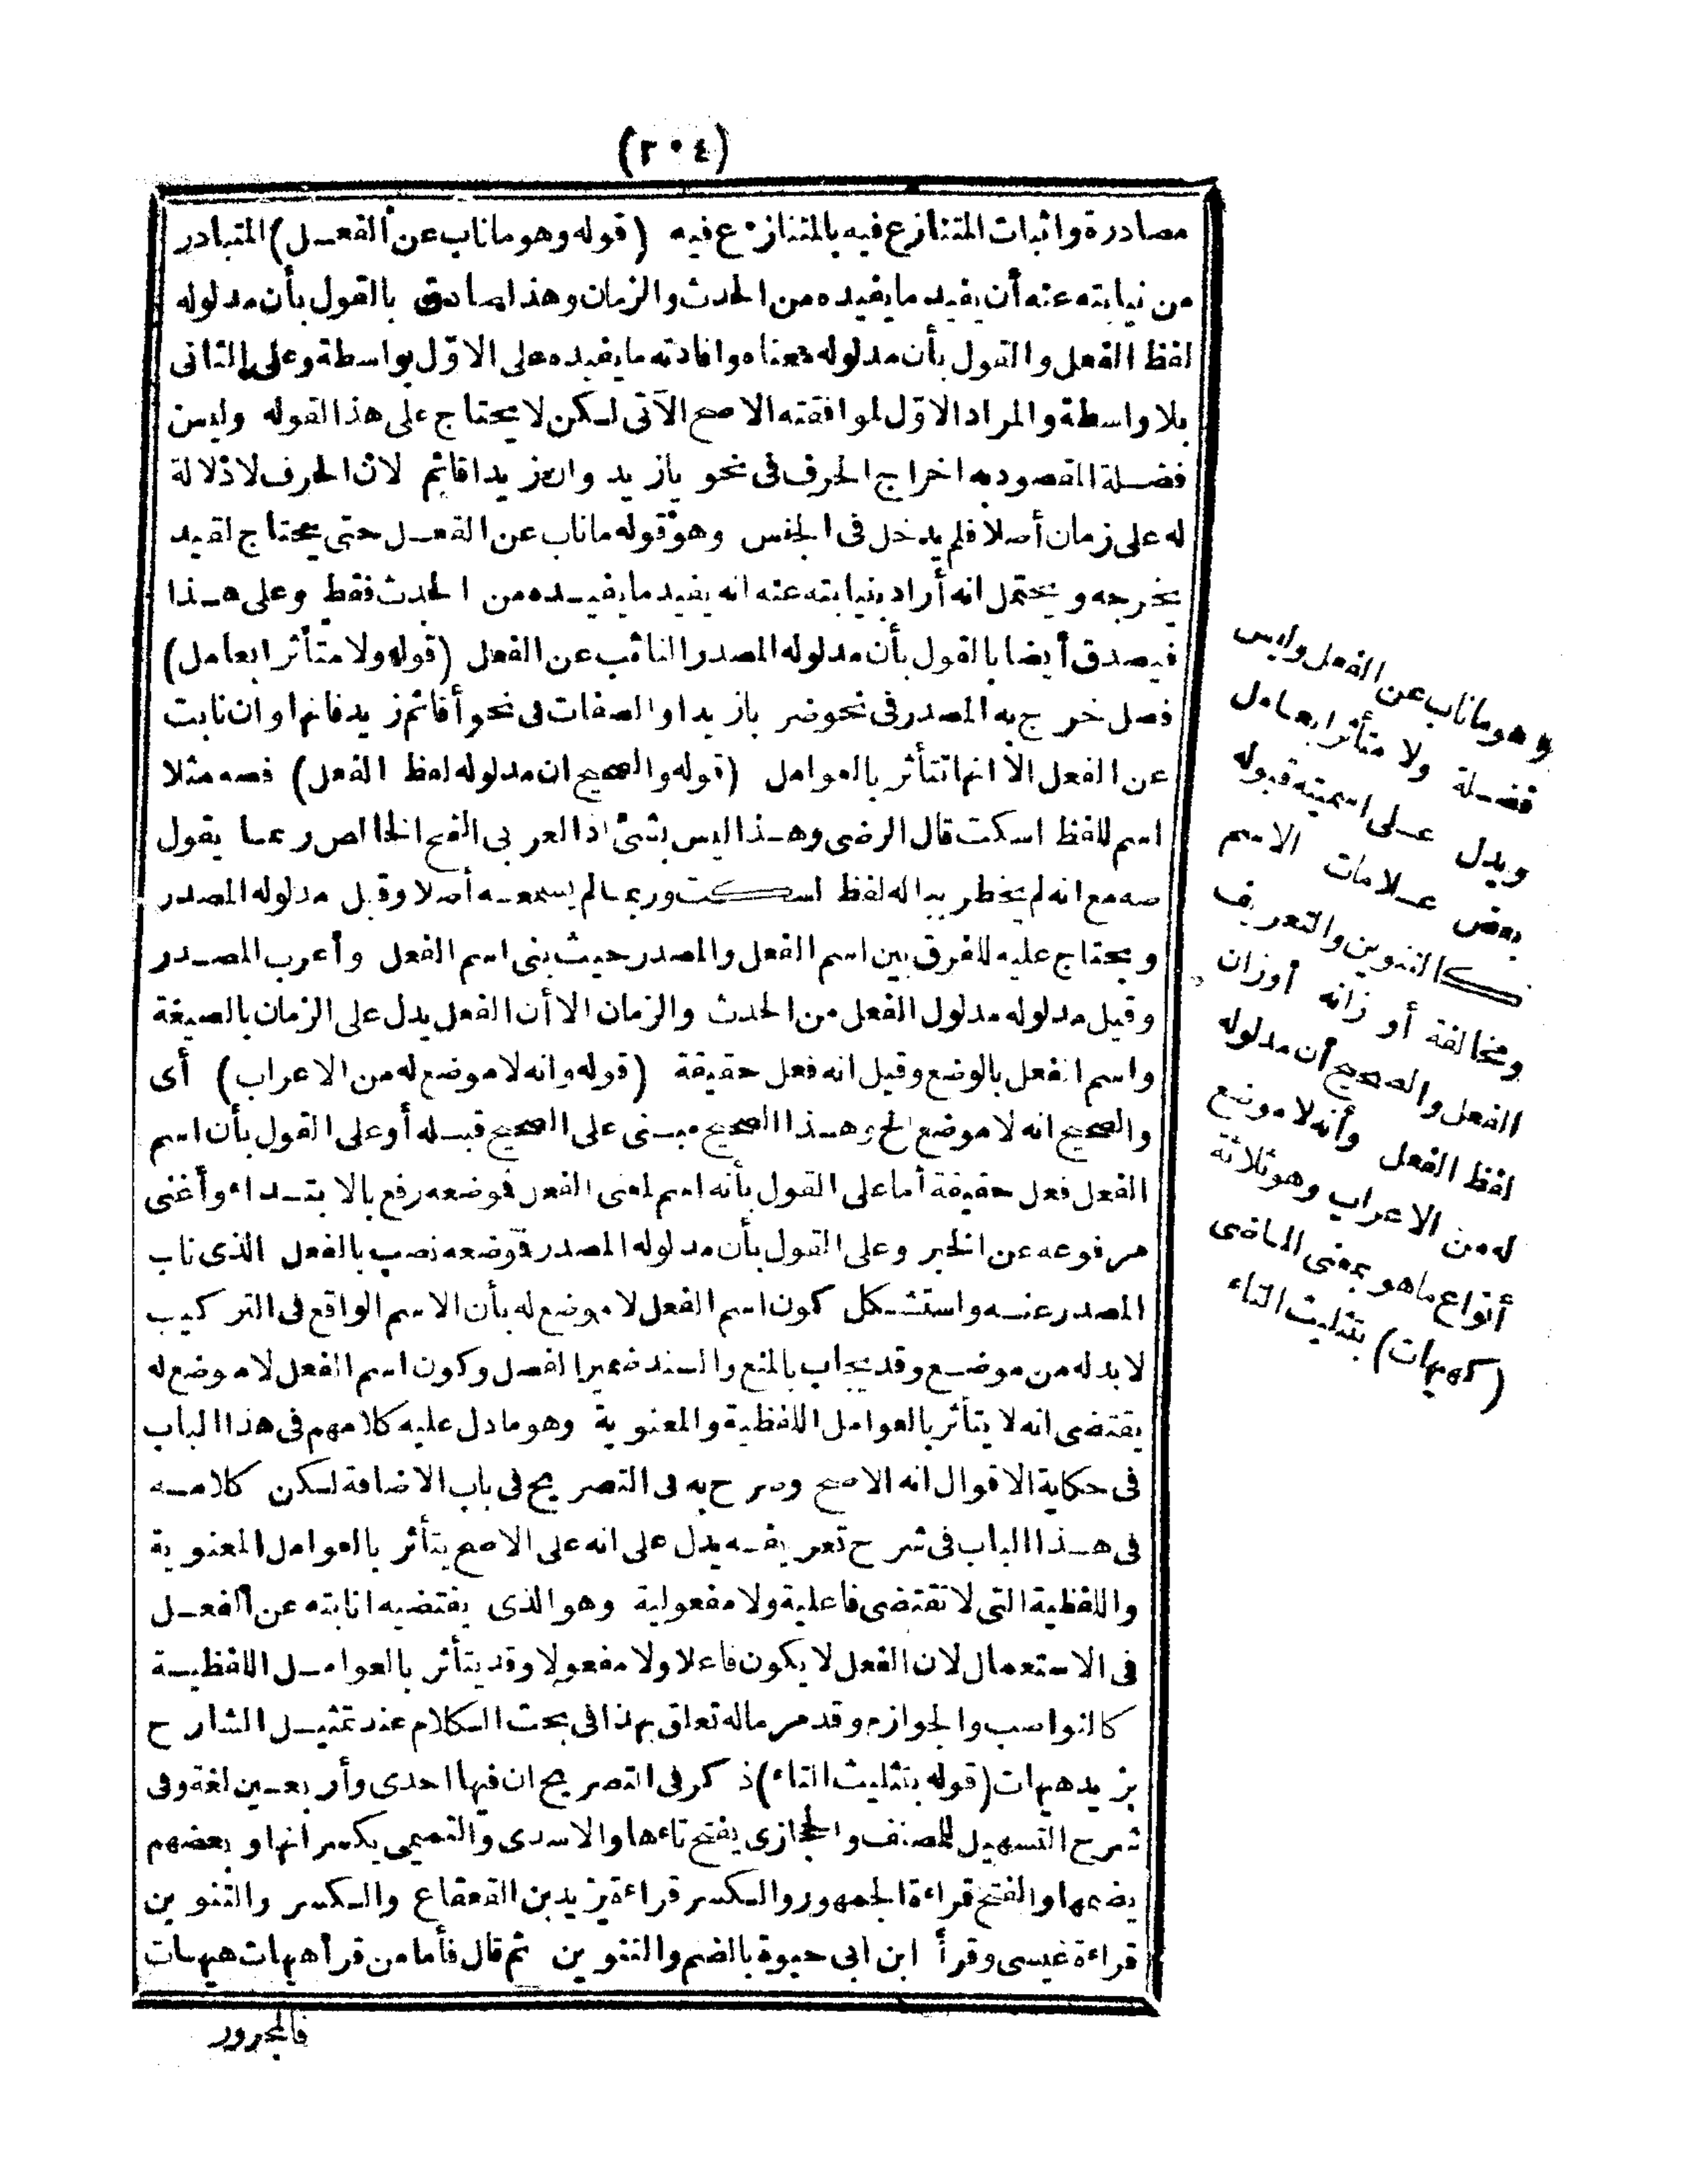 (٢٠٤)
مصادرة واثبات المتنازع فيه بالمتنازع فيه (قوله وهو ما ناب عن الفعل) المتبادر
من نيابته عنه أن يفيد ما يفيده من الحدث والزمان وهذا صادق بالقول بأن مدلوله
لفظ الفعل والقول بأن مدلوله معناه وافادته ما يفيده على الاوّل بواسطة وعلى الثانى
بلا واسطة والمراد الاوّل لموافقته الاصح الآتى لكن لا يحتاج على هذا لقوله وليس
فضلة المقصود به اخراج الحرف فى نحو يازيد وان زيدا قائم لان الحرف لا دلالة
له على زمان أصلا فلم يدخل فى الجنس وهو قوله ما ناب عن الفعل حتى يحتاج لقيد
يخرجه ويحتمل انه أراد بنيابته عنه انه يفيد ما يفيده من الحدث فقط وعلى هذا
فيصدق أيضا بالقول بأن مدلوله المصدر النائب عن الفعل (قوله ولا متأثرا بعامل)
فصل خرج به المصدر فى نحو ضربا زيدا والصفات فى نحو أقائم زيد فانها وان نابت
عن الفعل الا انها تتأثر بالعوامل (قوله والصحيح ان مدلوله لفظ الفعل) فصه مثلا
اسم للفظ اسكت قال الرضى وهذا ليس بشئ اذ العربى القح الخالص ربما يقول
صه مع انه لم يخطر بباله لفظ اسكت وربما لم يسمعه أصلا وقيل مدلوله المصدر
ويحتاج عليه للفرق بين اسم الفعل والمصدر حيث بنى اسم الفعل وأعرب المصدر
وقيل مدلوله مدلول الفعل من الحدث والزمان الا أن الفعل يدل على الزمان بالصيغة
واسم الفعل بالوضع وقيل انه فعل حقيقة (قوله وانه لا موضع له من الاعراب) أى
والصحيح انه لا موضع الخ وهذا الصحيح مبنى على الصحيح قبله أو على القول بأن اسم
الفعل فعل حقيقة أما على القول بأنه اسم لمعنى الفعل فوضعه رفع بالابتداء وأغنى
مرفوعه عن الخبر وعلى القول بأن مدلوله المصدر فوضعه نصب بالفعل الذى ناب
المصدر عنه واستشكل كون اسم الفعل لا موضع له بأن الاسم الواقع فى التركيب
لا بد له من موضع وقد يجاب بالمنع والسند ضمير الفصل وكون اسم الفعل لا موضع له
يقتضى انه لا يتأثر بالعوامل اللفظية والمعنوية وهو ما دل عليه كلامهم فى هذا الباب
فى حكاية الاقوال انه الاصح وصرح به فى التصريح فى باب الاضافة لكن كلامه
فى هذا الباب فى شرح تعريفه يدل على انه على الاصح يتأثر بالعوامل المعنوية
واللفظية التى لا تقتضى فاعلية ولا مفعولية وهو الذى يقتضيه انابته عن الفعل
فى الاستعمال لان الفعل لا يكون فاعلا ولا مفعولا وقد يتأثر بالعوامل اللفظية
كالنواسب والجوازم وقد مر ما له تعلق بهذا فى بحث الكلام عند تمثيل الشارح
بزيد هيهات (قوله بتثليث التاء) ذكر فى التصريح ان فيها احدى وأربعين لغة وفى
شرح التسهيل للمصنف والحجازى يفتح تاءها والاسدى والتميمى يكسرانها وبعضهم
يضمها والفتح قراءة الجمهور والكسر قراءة يزيد بن القعقاع والكسر والتنوين
قراءة عيسى وقرأ ابن ابى حيوة بالضم والتنوين ثم قال فأما من قرأ هيهات هيهات
فالمجرور
وهو ما ناب عن الفعل وليس
فضلة ولا متأثرا بعامل
ويدل على اسميته قبوله
بعض علامات الاسم
كالتنوين والتعريف
ومخالفة أوزانه أوزان
الفعل والصحيح أن مدلوله
لفظ الفعل وأنه لا موضع
له من الاعراب وهو ثلاثة
أنواع ما هو بمعنى الماضى
(كهيهات) بتثليث التاء